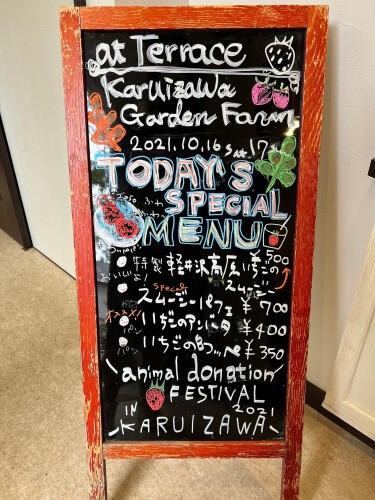 at Terrace
Karuizawa
Garden Farm
2021.10.16 sat. 17
TODAY'S
SPECIAL
MENU
特製 軽井沢高原いちごの
スムージー ¥500
おいしいよ!
Special
スムージーパフェ ¥700
オススメ!
いちごのアンバタ ¥400
パン
いちごの ¥350
パン
animal donation
FESTIVAL
2021
IN
KARUIZAWA